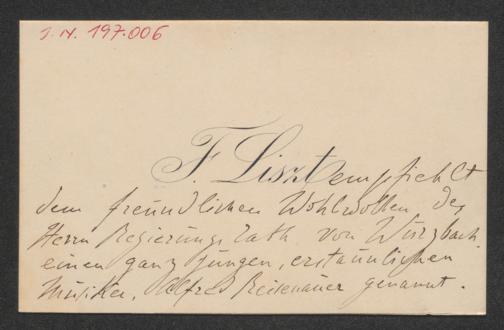 I.N. 197.006
F. Liszt empfiehlt
dem freundlichen Wohlwollen des
Herrn Regierungs Rath von Wurzbach
einen ganz jungen, erstaunlichen
Musiker, Alfred Reisenauer genannt.